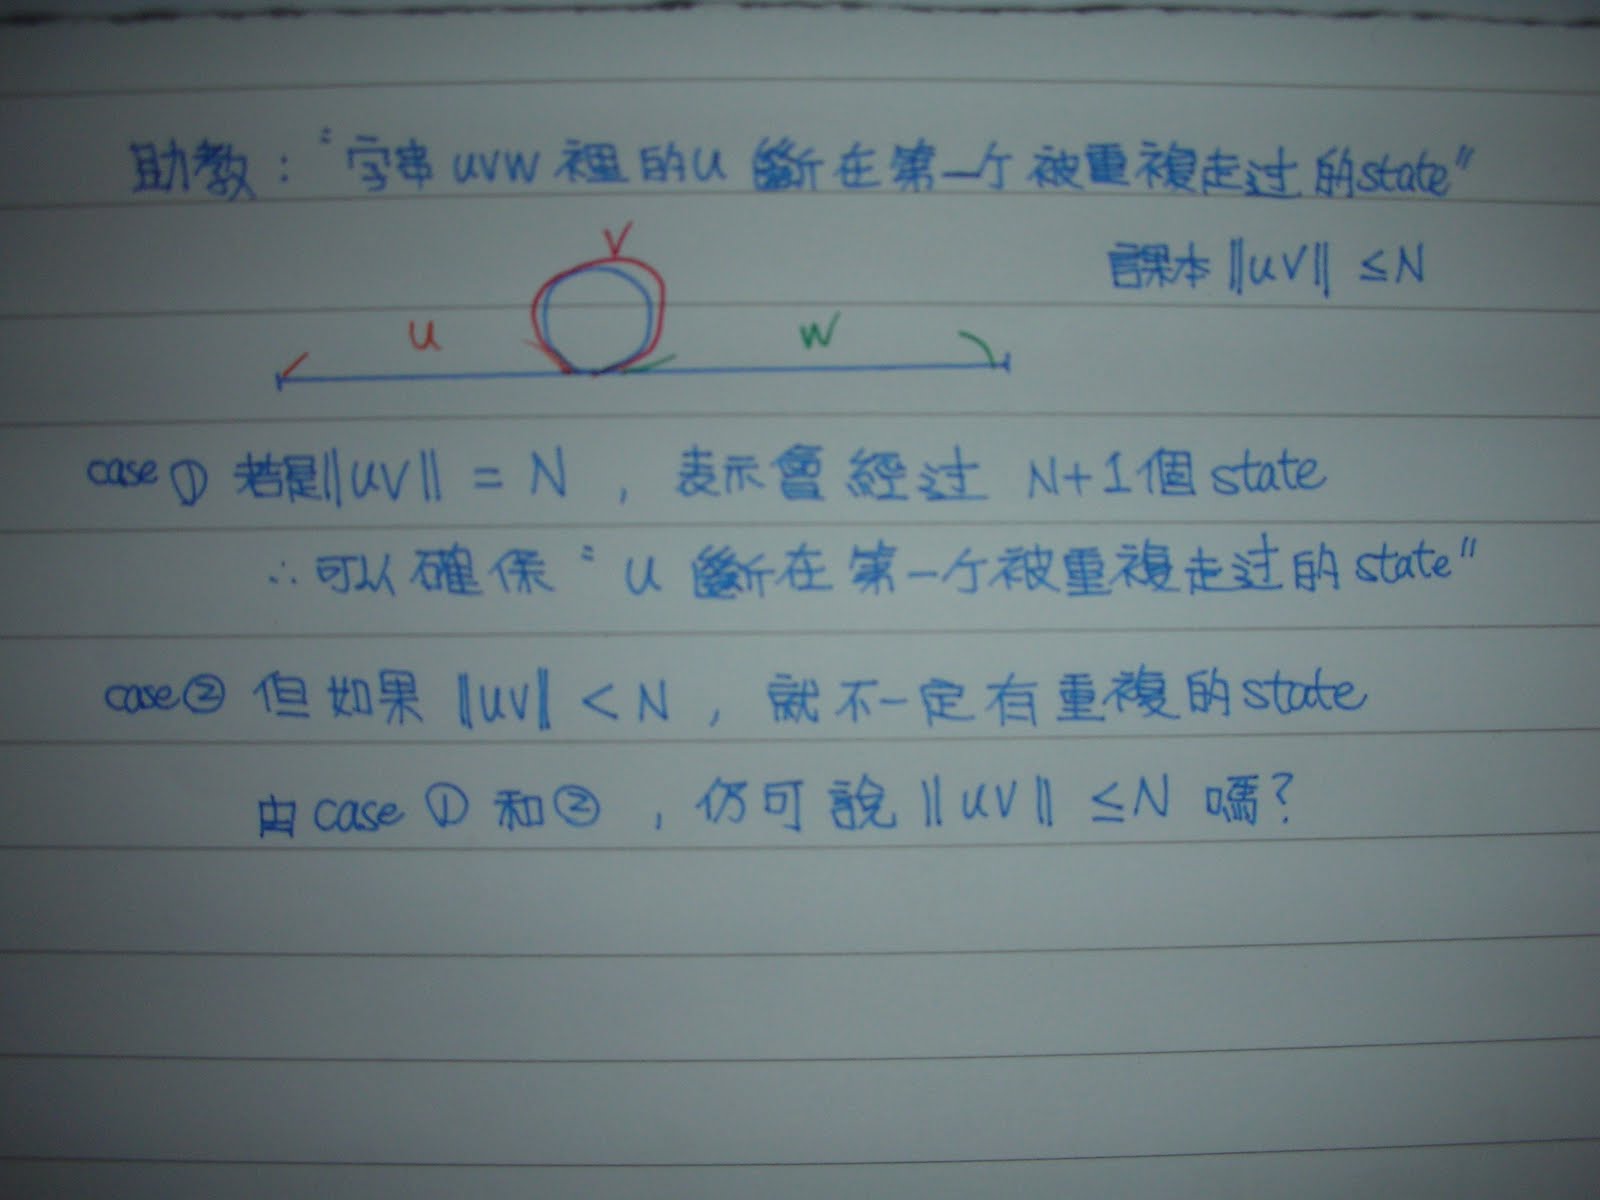 助教：〝字串 uvw 裡的 u 斷在第一个被重複走过的state〞
課本 ‖uv‖ ≤N
v
u
w
case ① 若是‖uv‖ = N , 表示會經过 N+1個 state
∴可以確保〝u 斷在第一个被重複走过的 state〞
case② 但如果 ‖uv‖ < N , 就不一定有重複的state
由 case ① 和② , 仍可說 ‖uv‖ ≤N 嗎?